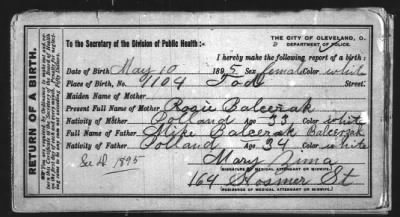 THE CITY OF CLEVELAND, O.
DEPARTMENT OF POLICE.
To the Secretary of the Division of Public Health:-
I hereby make the following report of a birth:
Date of Birth May 10 1895 Sex female Color white
Place of Birth, No. 1104 Tod Street.
Maiden Name of Mother
Present Full Name of Mother Rosie Balcerzak
Nativity of Mother Polland Age 33 Color white
Full Name of Father Mike Balcerak Balcerzak
Nativity of Father Polland Age 34 Color white
1895 Mary Zima
(SIGNATURE OF MEDICAL ATTENDANT OR MIDWIFE.)
164 Hosmer St
(RESIDENCE OF MEDICAL ATTENDANT OR MIDWIFE.)
RETURN OF A BIRTH.